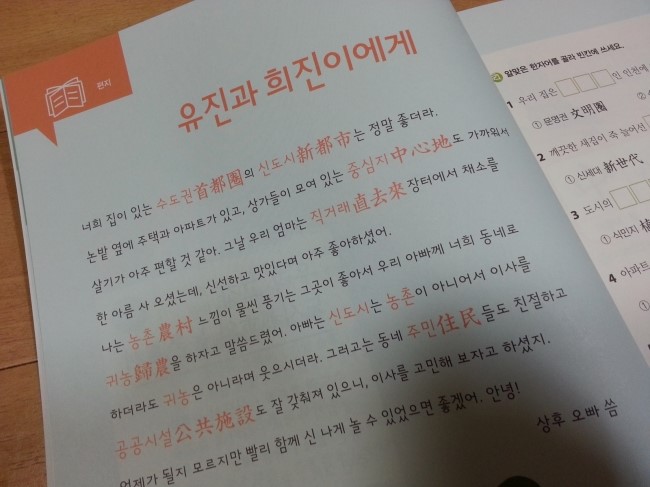 편지
유진과 희진이에게
너희 집이 있는 수도권首都圈의 신도시新都市는 정말 좋더라.
논밭 옆에 주택과 아파트가 있고, 상가들이 모여 있는 중심지中心地도 가까워서
살기가 아주 편할 것 같아. 그날 우리 엄마는 직거래直去來 장터에서 채소를
한 아름 사 오셨는데, 신선하고 맛있다며 아주 좋아하셨어.
나는 농촌農村 느낌이 물씬 풍기는 그곳이 좋아서 우리 아빠께 너희 동네로
귀농歸農을 하자고 말씀드렸어. 아빠는 신도시는 농촌이 아니어서 이사를
하더라도 귀농은 아니라며 웃으시더라. 그러고는 동네 주민住民들도 친절하고
공공시설公共施設도 잘 갖춰져 있으니, 이사를 고민해 보자고 하셨지.
언제가 될지 모르지만 빨리 함께 신 나게 놀 수 있었으면 좋겠어. 안녕!
상후 오빠 씀
알맞은 한자어를 골라 빈칸에 쓰세요.
1 우리 집은 인 인천에
① 문명권 文明圈
2 깨끗한 새집이 죽 늘어선
① 신세대 新世代
3 도시의
① 식민지
4 아파트